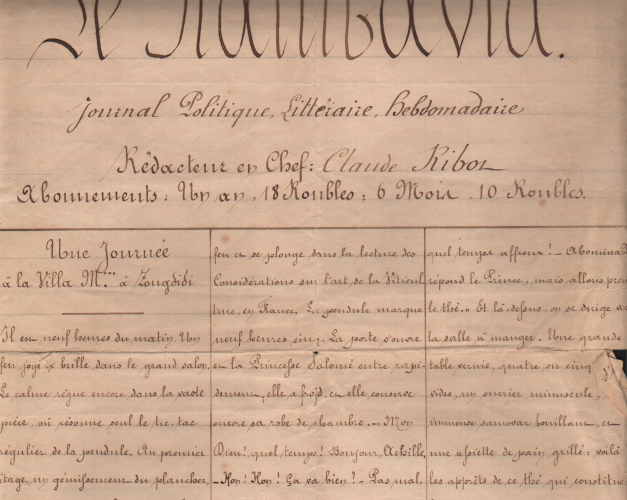 Le
Journal Politique, Littéraire, Hebdomadaire
Rédacteur en Chef: Claude Ribot
Abonnements: Un an, 18 Roubles; 6 Mois, 10 Roubles.
Une Journée
à la Villa M... à Zougdidi
Il est neuf heures du matin. Un
feu joyeux brille dans le grand salon.
Le calme règne encore dans la vaste
pièce, où résonne seul le tic-tac
régulier de la pendule. Au premier
étage, un gémissement du plancher,
feu et se plonge dans la lecture des
Considérations sur l'art de la Viticul
ture, en France. La pendule marque
neuf heures cinq. La porte s'ouvre
et la Princesse Salomé entre rapi-
dement, elle a froid, et elle conserve
encore sa robe de chambre. — Mon
Dieu! quel temps! Bonjour, Achille,
— Hon! Hon! Ça va bien? — Pas mal.
quel temps affreux! — Abomina
répond le Prince, mais allons
le thé. — Et là-dessus on se dirige
la salle à manger. Une grande
table vernie, quatre ou cinq
vides, un encrier minuscule,
immense samovar bouillant, et
une assiette de pain grillé: voilà
les apprêts de ce thé qui, constitue